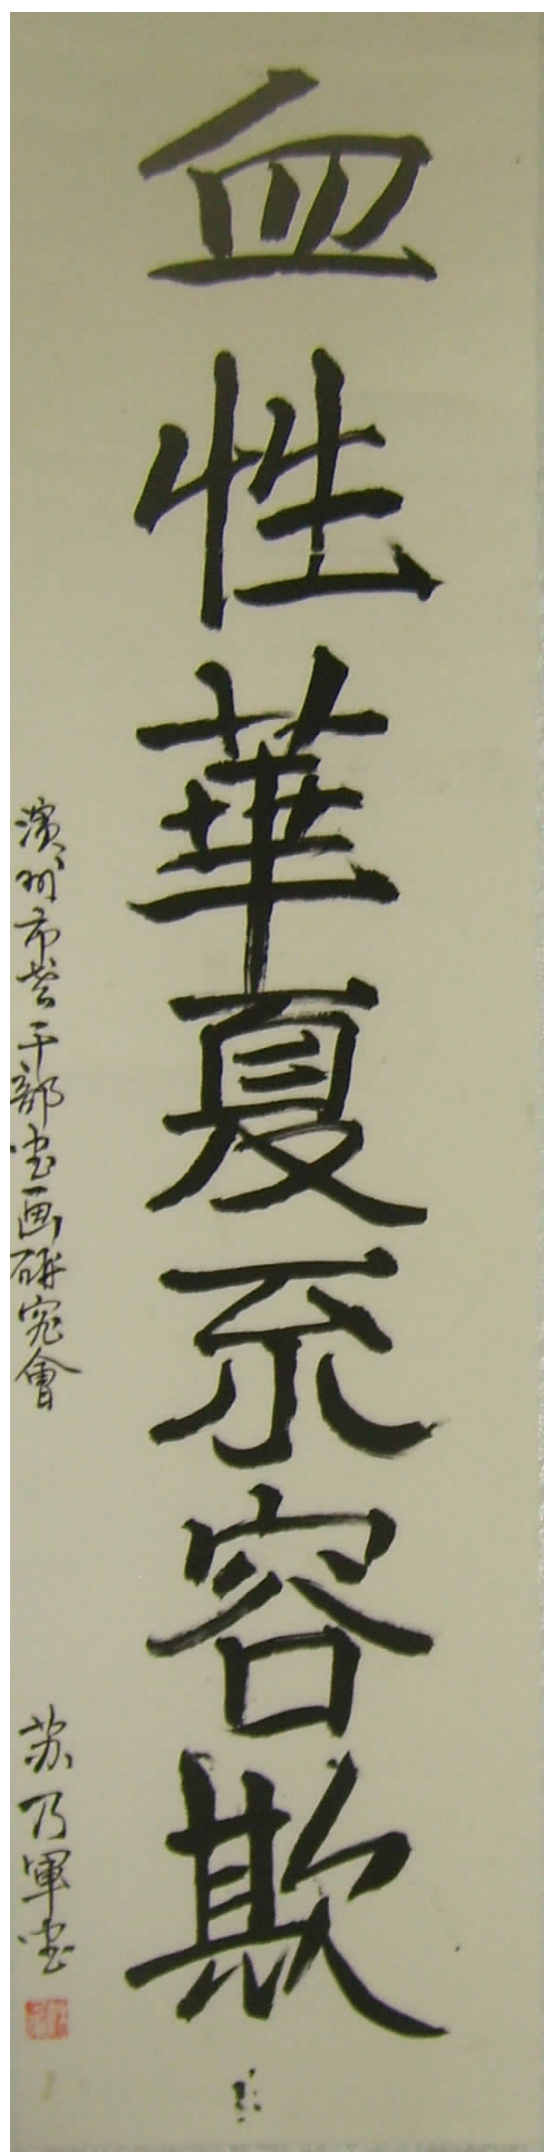 血性華夏不容欺
濱州市老干部书画研究會
苏乃軍书